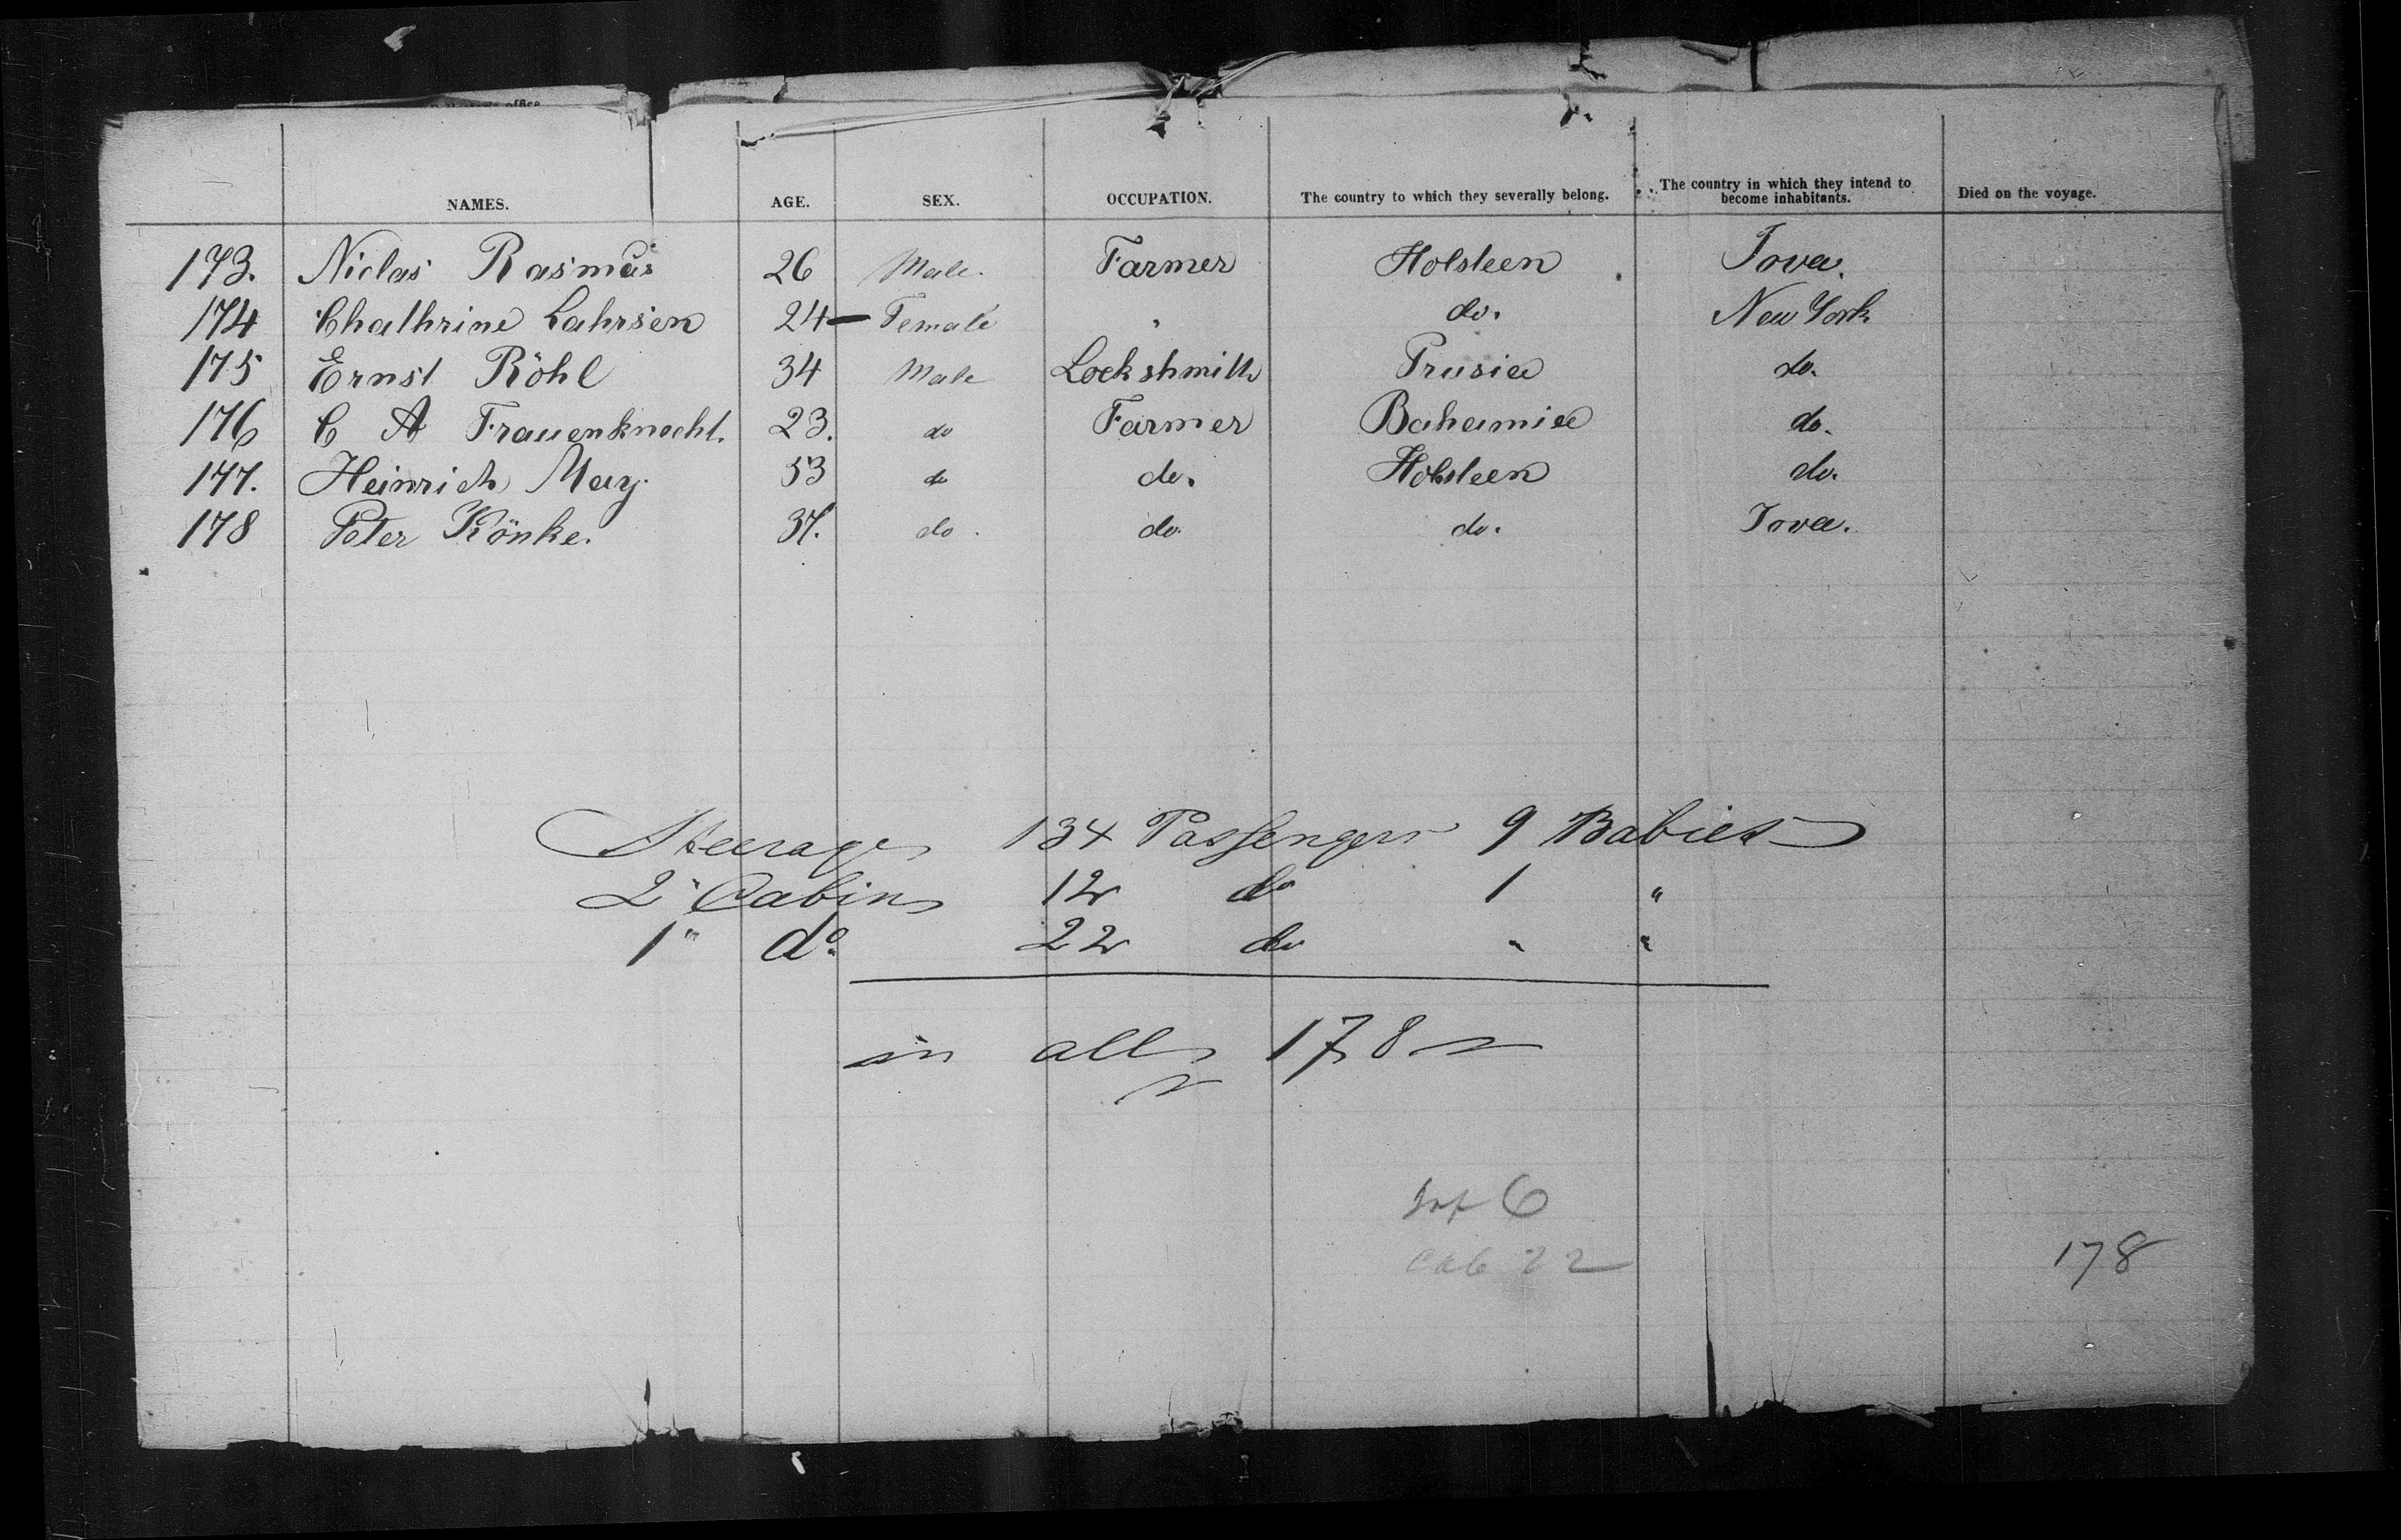 office
NAMES. AGE. SEX. OCCUPATION. The country to which they severally belong. The country in which they intend to become inhabitants. Died on the voyage.
173. Niclas Rasmus 26 Male. Farmer Holsteen Iova.
174 Chathrine Lahrsen 24 — Female " do. New York.
175 Ernst Röhl 34 Male Lockshmith Prusia do.
176 C A Frauenknecht. 23. do Farmer Bahamia do.
177. Heinrich May. 53 do do. Holsteen do.
178 Peter Könke. 37. do. do. do. Iova.
Steerage 134 Passengers 9 Babies
2" Cabin 12 do 1 "
1" do. 22 do " "
in all 178
Inf 6
Cab 22
178